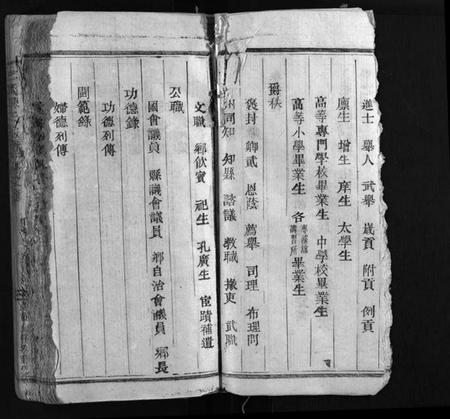 進士 舉人 武舉 歲貢 附貢 例貢
廩生 增生 庠生 太學生
高等專門學校畢業生 中學校畢業生
高等小學畢業生 各專養成講習所畢業生
爵秩
褒封 卹贰 恩蔭 薦舉 司理 布理問
州同知 知縣 諮議 教職 掾吏 武職
文職 鄉飲賓 祀生 孔廣生 宦蹟補遺
公職
國會議員 縣議會議員 鄉自治會議員 鄉長
功德錄
功德列傳
閫範錄
婦德列傳